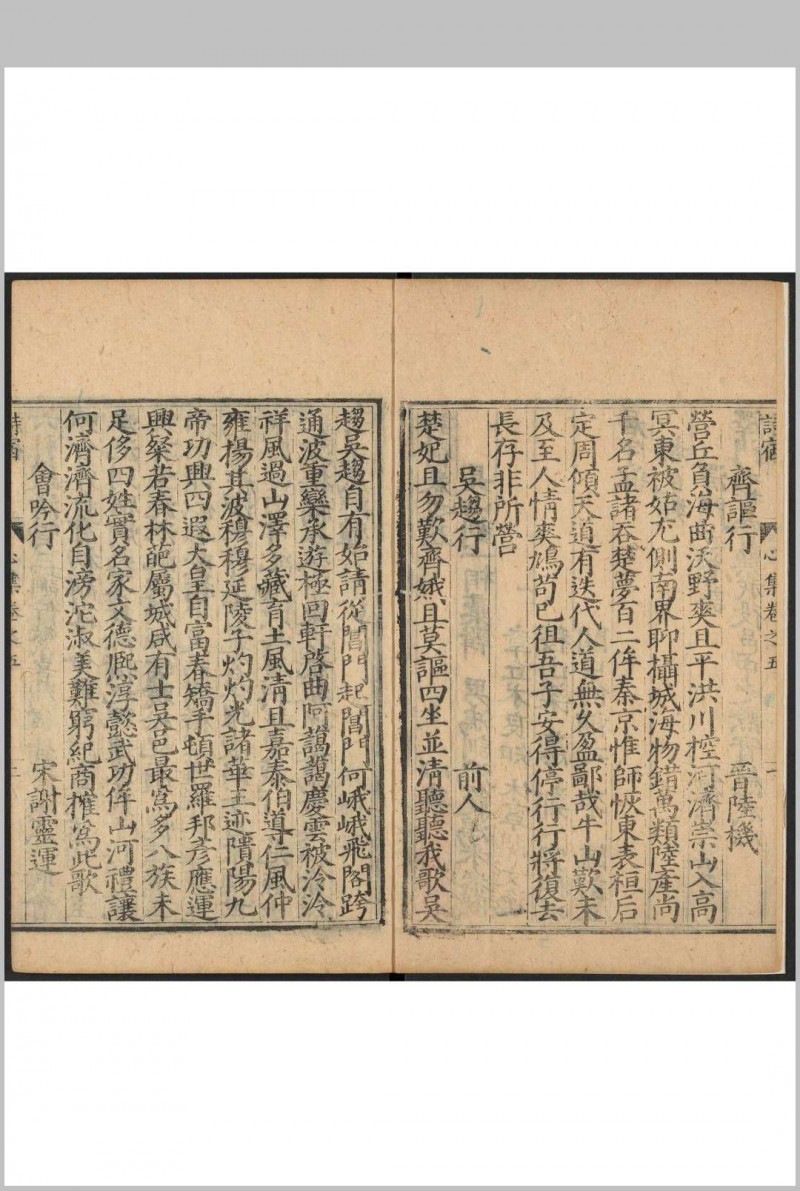 詩宿 心集卷之五 一
齊謳行 晉陸機
營丘負海曲沃野爽且平洪川控河濟崇山入高
冥東被姑尤側南界聊攝城海物錯萬類陸產尚
千名孟諸吞楚夢百二侔秦京惟師恢東表桓后
定周傾天道有迭代人道無久盈鄙哉牛山歎未
及至人情爽鳩苟已徂吾子安得停行行將復去
長存非所營
吳趨行 前人
楚妃且勿歎齊娥且莫謳四坐並清聽聽我歌吳
趨吳趨自有始請從閶門起閶門何峨峨飛閣跨
通波重欒承游極回軒啓曲阿藹藹慶雲被泠泠
祥風過山澤多藏育土風清且嘉泰伯導仁風仲
雍揚其波穆穆延陵子灼灼光諸華王迹隤陽九
帝功興四遐大皇自富春矯手頓世羅邦彥應運
興粲若春林葩屬城咸有士吳邑最爲多八族未
足侈四姓實名家文德熈淳懿武功侔山河禮讓
何濟濟流化自滂沱淑美難窮紀商搉爲此歌
會吟行 宋謝靈運
詩宿 心集卷之五